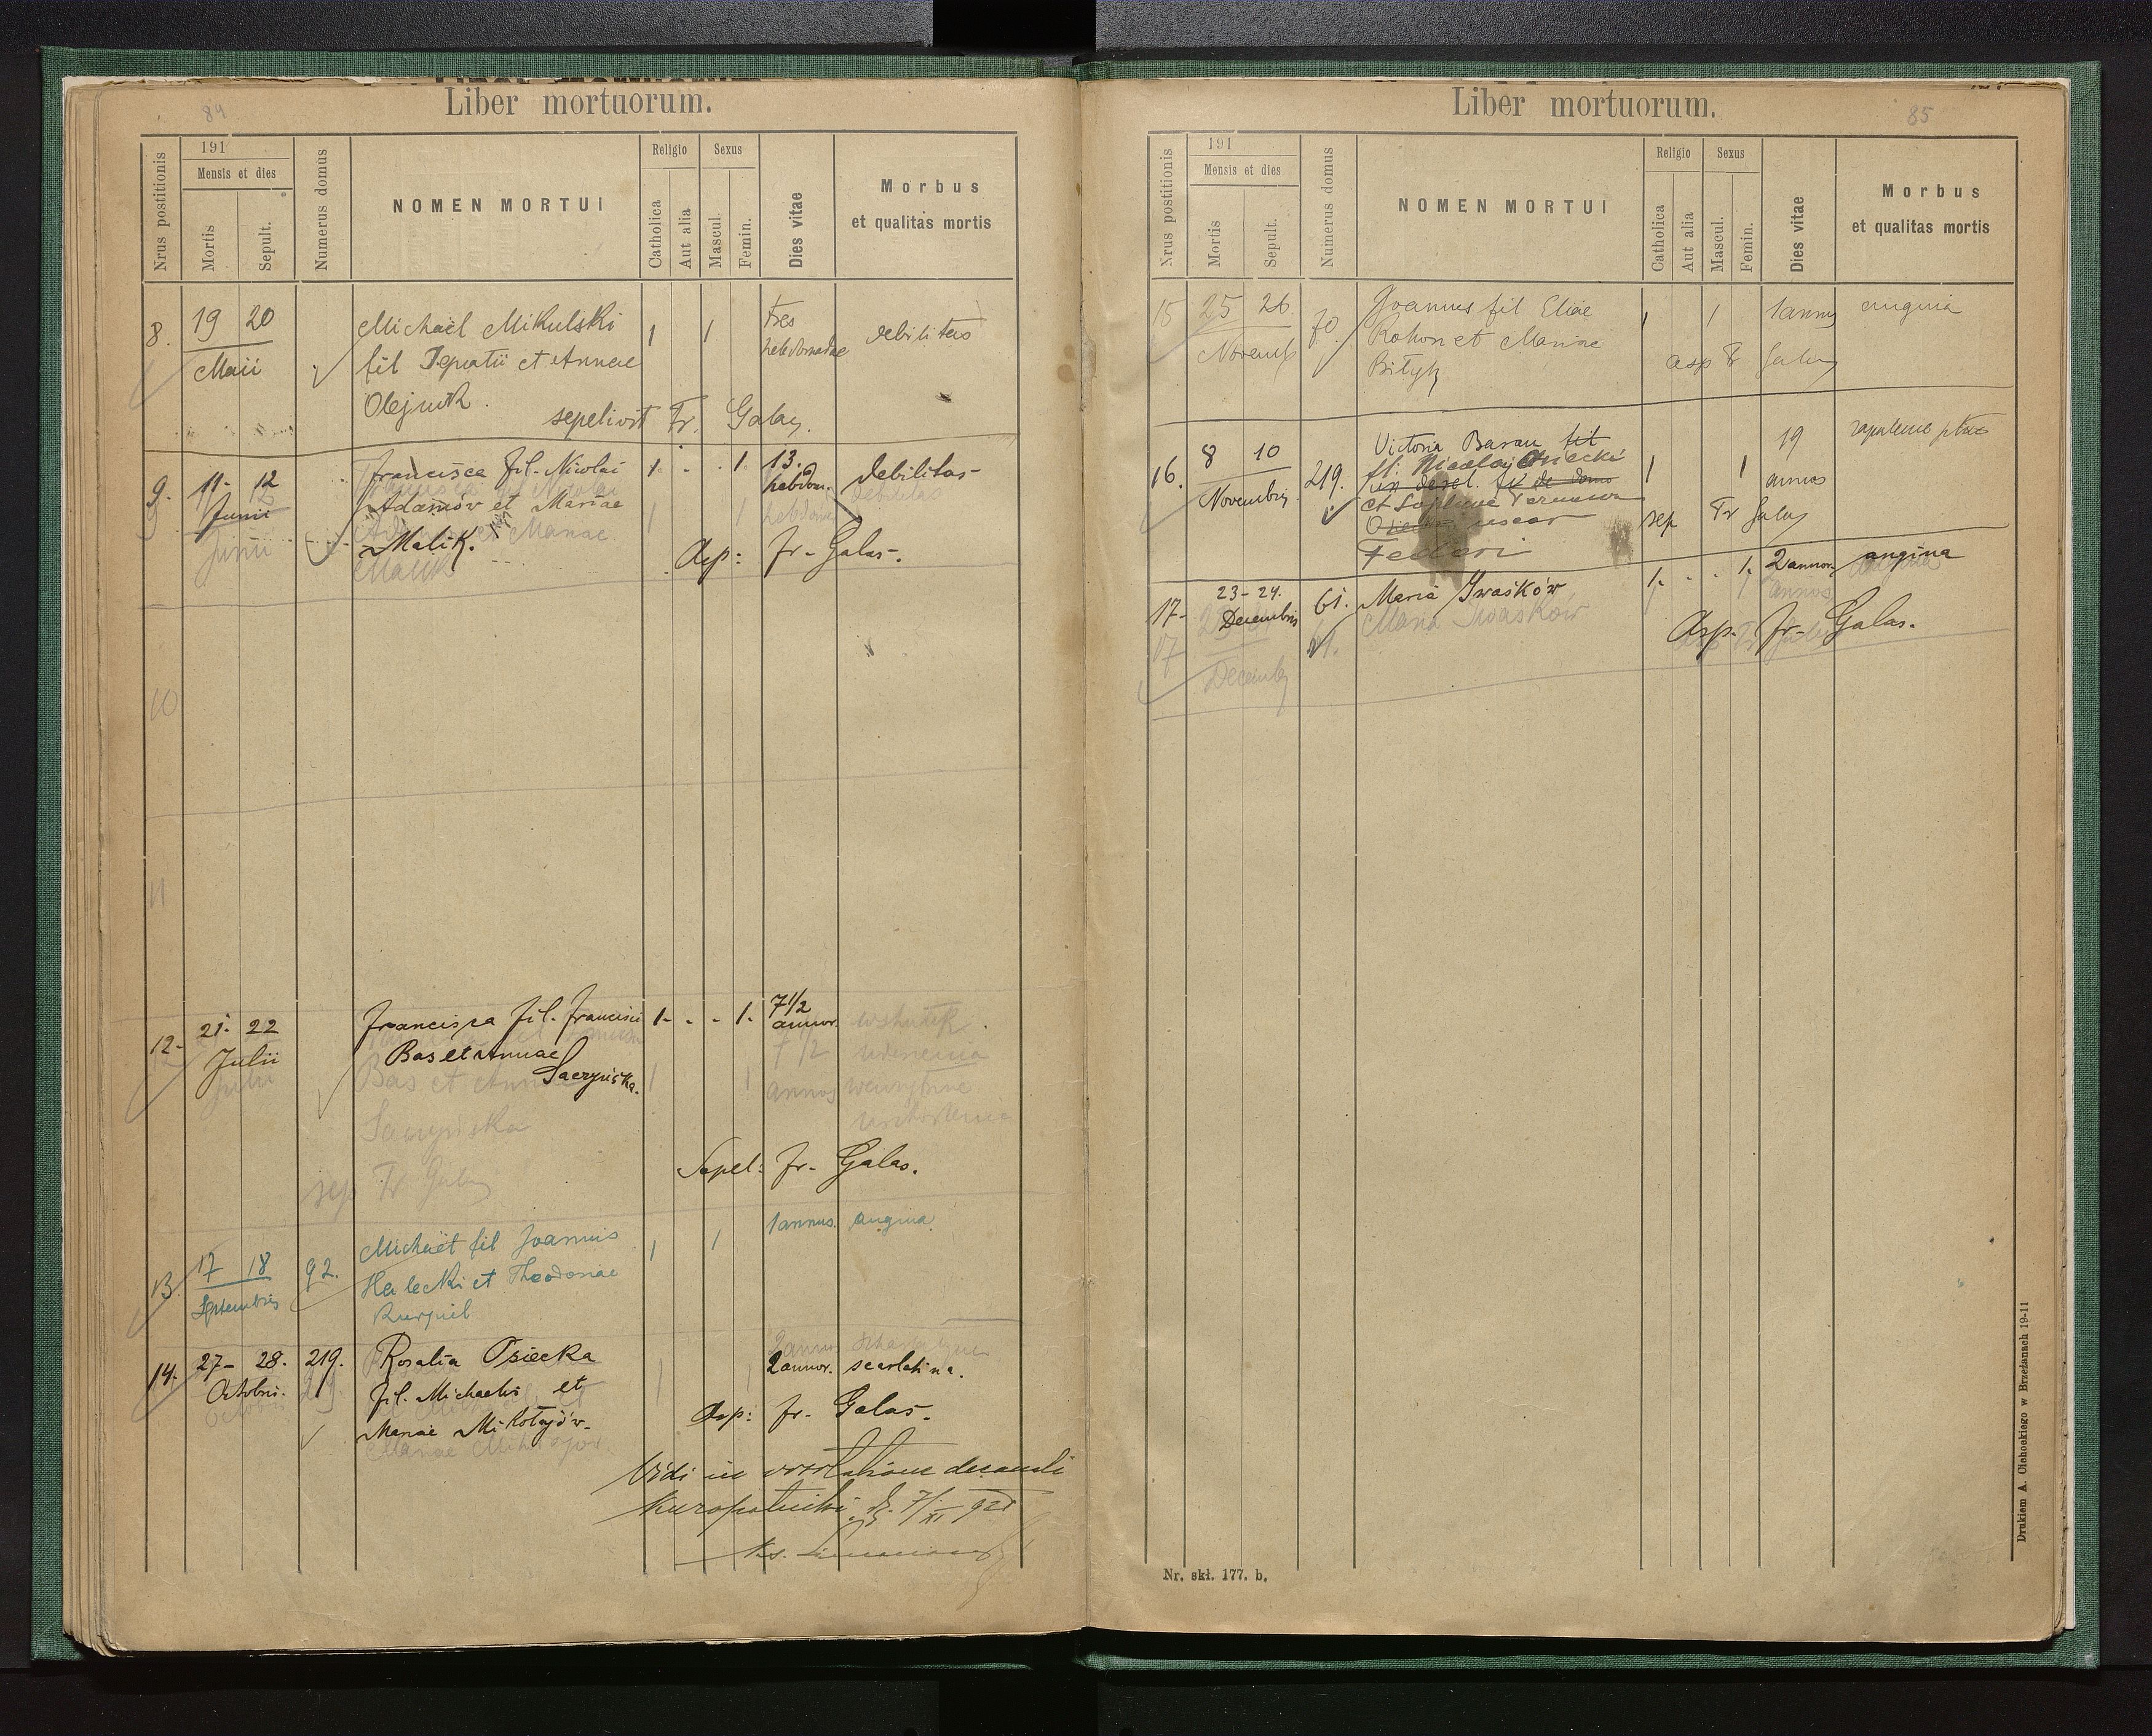 84
Liber mortuorum.
Nrus postitionis
191
Mensis et dies
Mortis
Sepult.
Numerus domus
NOMEN MORTUI
Religio
Catholica
Aut alia
Sexus
Mascul.
Femin.
Dies vitae
Morbus
et qualitas mortis
8. 19 20 Michaël Mikulski 1 1 tres debilitas
Maii fil Ignatii et Annae hebdomadae
Olejnik.
sepelivit Fr. Galas.
9. 11- 12 Francisca fil. Nicolai 1. - . 1. 13. debilitas
Junii Adamów et Mariae hebdom.
Malik.
Asp: Fr. Galas.
10
11
12- 21- 22 Francisca fil. Francisci 1- - - 1. 7 1/2
Julii Bas et Annae annor.
7 1/2
Bas et annos
sep Fr Galas
Sepel: Fr. Galas.
13 17 18 92. Michaël fil Joannis 1 1 1 annus. angina
Septembris Halecki et Theodosiae
14. 27- 28. 219. Rosalia Osiecka 2 annor. scarlatina.
Octobris. fil. Michaelis et
Mariae Mikołajów.
Asp: Fr. Galas.
Vidi in visitatione decanali
85
Liber mortuorum.
Nrus postitionis
191
Mensis et dies
Mortis
Sepult.
Numerus domus
NOMEN MORTUI
Religio
Catholica
Aut alia
Sexus
Mascul.
Femin.
Dies vitae
Morbus
et qualitas mortis
15 25 26. 70. Joannes fil Eliae 1 1 1 annus angina
Novemb et Mariae
asp Fr Galas
16. 8 10 219. Victoria Baran fil 1 1 19 zapalenie płuc
Novembris fil: Nicolai Osiecki annos
et Sophiae
sep Fr Galas
Fedori
17- 23- 24. 61. Maria Iwaśków 1- - . 1. 2 annor. angina
Decembris
17 Maria Iwasków annos
Decemb
Asp. Fr. Galas.
Nr. skł. 177. b.
Drukiem A. Cichockiego w Brzeżanach 19-11